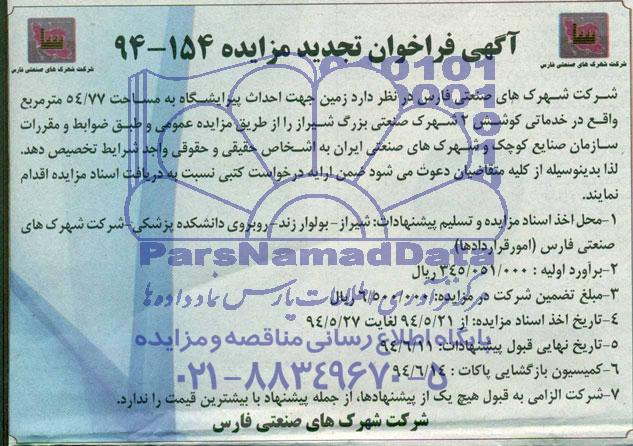 آگهی فراخوان تجدید مزایده ۱۵۴-۹۴
شرکت شهرک های صنعتی فارس
شرکت شهرک های صنعتی فارس
شرکت شهرک های صنعتی فارس در نظر دارد زمین جهت احداث پیرایشگاه به مساحت ۵۴/۷۷ مترمربع
واقع در خدماتی کوشش ۲ شهرک صنعتی بزرگ شیراز را از طریق مزایده عمومی و طبق ضوابط و مقررات
سازمان صنایع کوچک و شهرک های صنعتی ایران به اشخاص حقیقی و حقوقی واجد شرایط تخصیص دهد.
لذا بدینوسیله از کلیه متقاضیان دعوت می شود ضمن ارایه درخواست کتبی نسبت به دریافت اسناد مزایده اقدام
نمایند.
۱-محل اخذ اسناد مزایده و تسلیم پیشنهادات: شیراز- بولوار زند- روبروی دانشکده پزشکی- شرکت شهرک های
صنعتی فارس (امورقراردادها)
۲-برآورد اولیه : ۳۴۵/۰۵۱/۰۰۰ ریال
۳-مبلغ تضمین شرکت در مزایده: ۶/۵۰۰/۰۰۰ ریال
۴-تاریخ اخذ اسناد مزایده: از ۹۴/۵/۲۱ لغایت ۹۴/۵/۲۷
۵-تاریخ نهایی قبول پیشنهادات: ۹۴/۶/۱۱
۶-کمیسیون بازگشایی پاکات : ۹۴/۶/۱۴
۷-شرکت الزامی به قبول هیچ یک از پیشنهادها، از جمله پیشنهاد با بیشترین قیمت را ندارد.
شرکت شهرک های صنعتی فارس
ParsNamadData
مرکز فرآوری اطلاعات پارس نماد داده ها
پایگاه اطلاع رسانی مناقصه و مزایده
۰۲۱-۸۸۳۴۹۶۷۰-۵